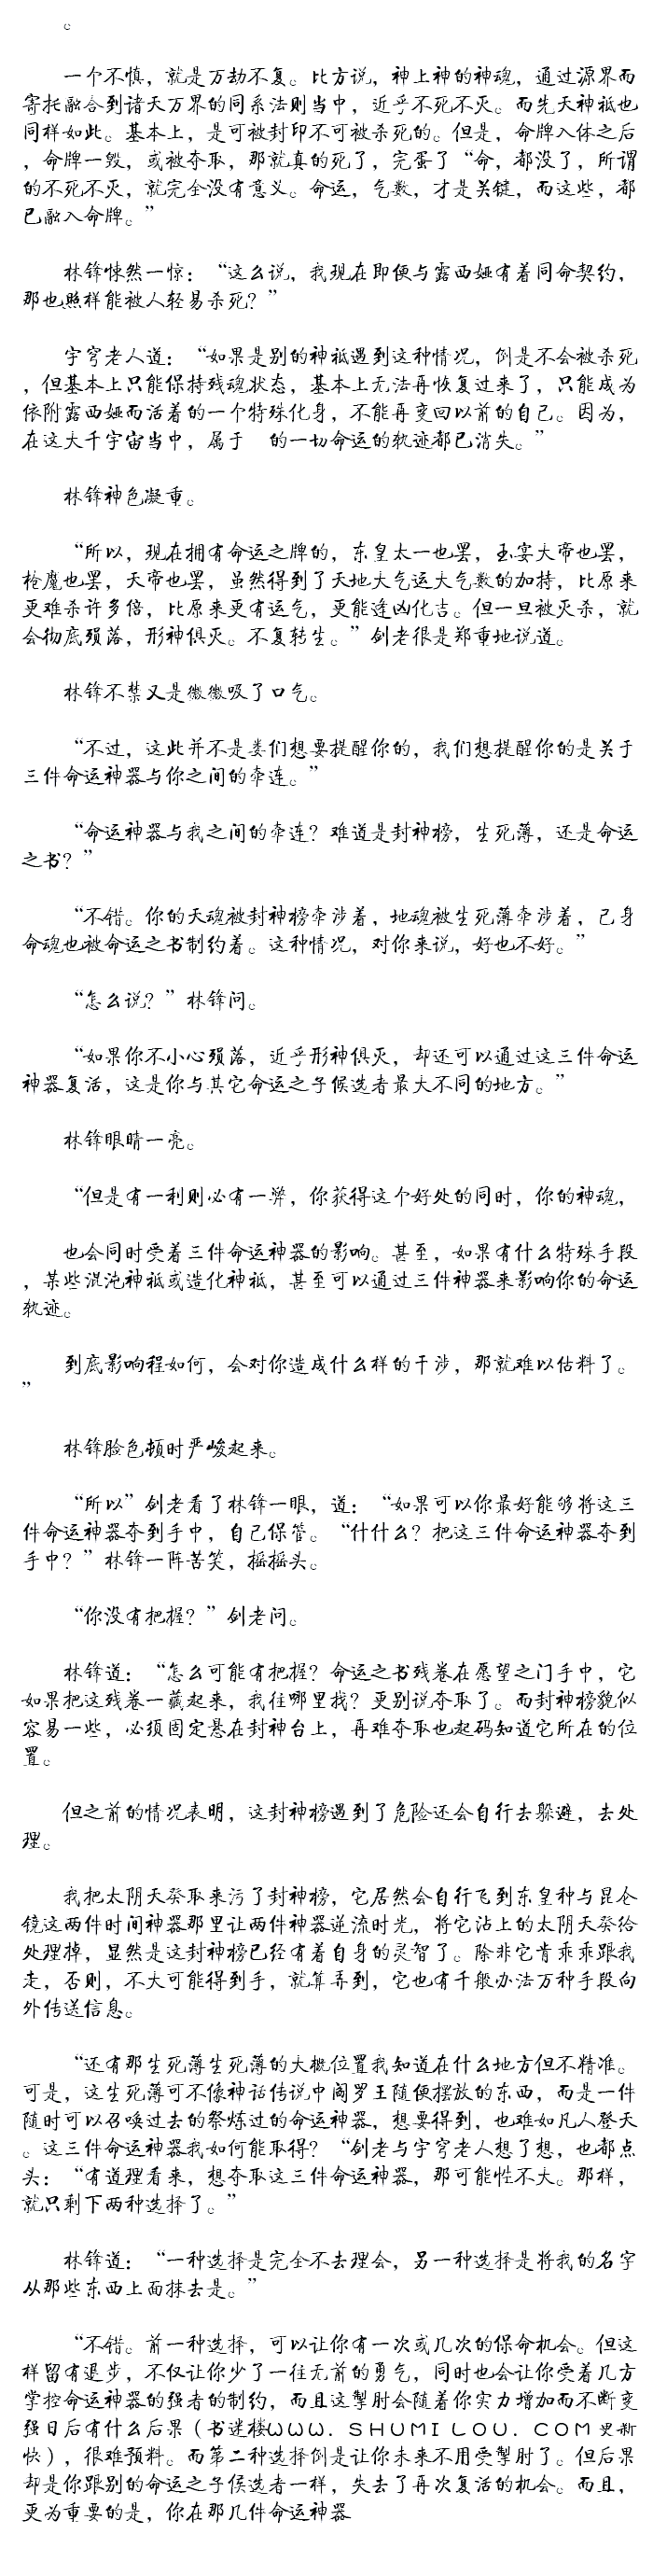 。
一个不慎，就是万劫不复。比方说，神上神的神魂，通过源界而
寄托融合到诸天万界的同系法则当中，近乎不死不灭。而先天神祗也
同样如此。基本上，是可被封印不可被杀死的。但是，命牌入体之后
，命牌一毁，或被夺取，那就真的死了，完蛋了“命，都没了，所谓
的不死不灭，就完全没有意义。命运，气数，才是关键，而这些，都
已融入命牌。”
林锋悚然一惊：“这么说，我现在即便与露西娅有着同命契约，
那也照样能被人轻易杀死？”
宇穹老人道：“如果是别的神祗遇到这种情况，倒是不会被杀死
，但基本上只能保持残魂状态，基本上无法再恢复过来了，只能成为
依附露西娅而活着的一个特殊化身，不能再变回以前的自己。因为，
在这大千宇宙当中，属于　的一切命运的轨迹都已消失。”
林锋神色凝重。
“所以，现在拥有命运之牌的，东皇太一也罢，玉宴大帝也罢，
枪魔也罢，天帝也罢，虽然得到了天地大气运大气数的加持，比原来
更难杀许多倍，比原来更有运气，更能逢凶化吉。但一旦被灭杀，就
会彻底殒落，形神俱灭。不复转生。”剑老很是郑重地说道。
林锋不禁又是微微吸了口气。
“不过，这此并不是娄们想要提醒你的，我们想提醒你的是关于
三件命运神器与你之间的牵连。”
“命运神器与我之间的牵连？难道是封神榜，生死薄，还是命运
之书？”
“不错。你的天魂被封神榜牵涉着，地魂被生死薄牵涉着，己身
命魂也被命运之书制约着。这种情况，对你来说，好也不好。”
“怎么说？”林锋问。
“如果你不小心殒落，近乎形神俱灭，却还可以通过这三件命运
神器复活，这是你与其它命运之子候选者最大不同的地方。”
林锋眼睛一亮。
“但是有一利则必有一弊，你获得这个好处的同时，你的神魂，
也会同时受着三件命运神器的影响。甚至，如果有什么特殊手段
，某些混沌神祗或造化神祗，甚至可以通过三件神器来影响你的命运
轨迹。
到底影响程如何，会对你造成什么样的干涉，那就难以估料了。
”
林锋脸色顿时严峻起来。
“所以”剑老看了林锋一眼，道：“如果可以你最好能够将这三
件命运神器夺到手中，自己保管。“什什么？把这三件命运神器夺到
手中？”林锋一阵苦笑，摇摇头。
“你没有把握？”剑老问。
林锋道：“怎么可能有把握？命运之书残卷在愿望之门手中，它
如果把这残卷一藏起来，我往哪里找？更别说夺取了。而封神榜貌似
容易一些，必须固定悬在封神台上，再难夺取也起码知道它所在的位
置。
但之前的情况表明，这封神榜遇到了危险还会自行去躲避，去处
理。
我把太阴天癸取来污了封神榜，它居然会自行飞到东皇种与昆仑
镜这两件时间神器那里让两件神器逆流时光，将它沾上的太阴天癸给
处理掉，显然是这封神榜已经有着自身的灵智了。除非它肯乖乖跟我
走，否则，不大可能得到手，就算弄到，它也有千般办法万种手段向
外传送信息。
“还有那生死薄生死薄的大概位置我知道在什么地方但不精准。
可是，这生死薄可不像神话传说中阎罗王随便摆放的东西，而是一件
随时可以召唤过去的祭炼过的命运神器，想要得到，也难如凡人登天
。这三件命运神器我如何能取得？“剑老与宇穹老人想了想，也都点
头：“有道理看来，想夺取这三件命运神器，那可能性不大。那样，
就只剩下两种选择了。”
林锋道：“一种选择是完全不去理会，另一种选择是将我的名字
从那些东西上面抹去是。”
“不错。前一种选择，可以让你有一次或几次的保命机会。但这
样留有退步，不仅让你少了一往无前的勇气，同时也会让你受着几方
掌控命运神器的强者的制约，而且这掣肘会随着你实力增加而不断变
强日后有什么后果（书迷楼ＷＷＷ．ＳＨＵＭＩＬＯＵ．ＣＯＭ更新
快），很难预料。而第二种选择倒是让你未来不用受掣肘了。但后果
却是你跟别的命运之子候选者一样，失去了再次复活的机会。而且，
更为重要的是，你在那几件命运神器